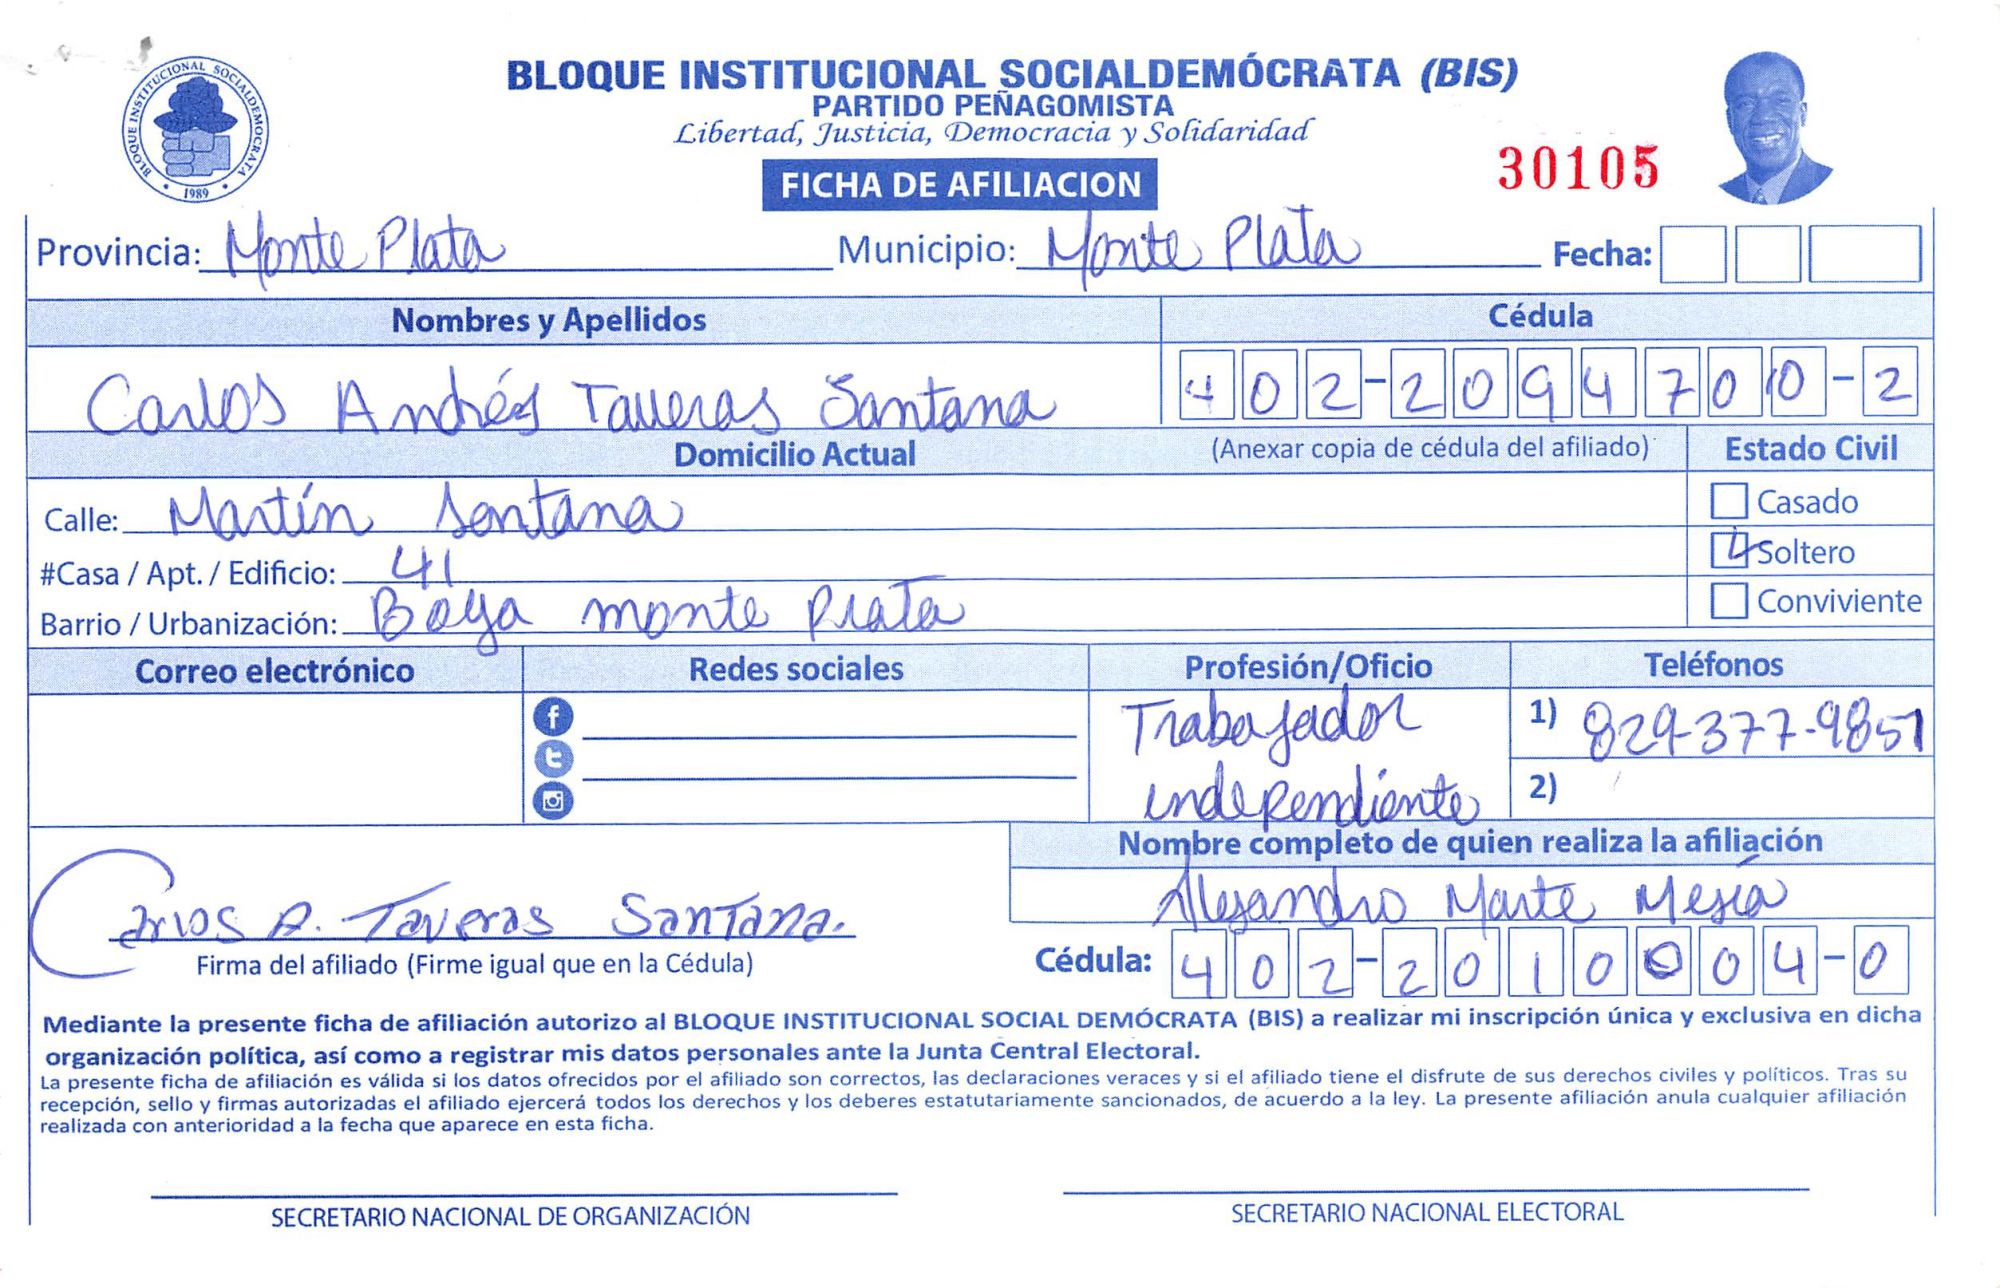 BLOQUE INSTITUCIONAL SOCIALDEMÓCRATA
1989
BLOQUE INSTITUCIONAL SOCIALDEMÓCRATA (BIS)
PARTIDO PEÑAGOMISTA
Libertad, Justicia, Democracia y Solidaridad
FICHA DE AFILIACION
30105
Provincia: Monte Plata Municipio: Monte Plata Fecha:
Nombres y Apellidos Cédula
Carlos Andrés Taveras Santana 402-2094700-2
Domicilio Actual (Anexar copia de cédula del afiliado) Estado Civil
Calle: Martín Santana Casado
#Casa / Apt. / Edificio: 41 Soltero
Barrio / Urbanización: Boya monte Plata Conviviente
Correo electrónico Redes sociales Profesión/Oficio Teléfonos
Trabajador 1) 829-377-9851
independiente 2)
Nombre completo de quien realiza la afiliación
Carlos A. Taveras Santana. Alejandro Marte Mesía
Firma del afiliado (Firme igual que en la Cédula) Cédula: 402-2010004-0
Mediante la presente ficha de afiliación autorizo al BLOQUE INSTITUCIONAL SOCIAL DEMÓCRATA (BIS) a realizar mi inscripción única y exclusiva en dicha
organización política, así como a registrar mis datos personales ante la Junta Central Electoral.
La presente ficha de afiliación es válida si los datos ofrecidos por el afiliado son correctos, las declaraciones veraces y si el afiliado tiene el disfrute de sus derechos civiles y políticos. Tras su
recepción, sello y firmas autorizadas el afiliado ejercerá todos los derechos y los deberes estatutariamente sancionados, de acuerdo a la ley. La presente afiliación anula cualquier afiliación
realizada con anterioridad a la fecha que aparece en esta ficha.
SECRETARIO NACIONAL DE ORGANIZACIÓN SECRETARIO NACIONAL ELECTORAL